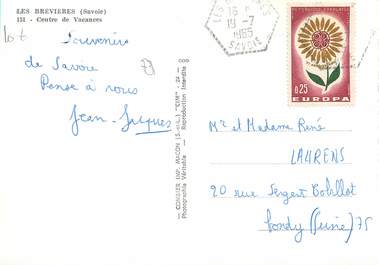 LES BREVIERES (Savoie)
151 - Centre de Vacances
Souvenirs
de Savoie
Pense à vous
Jean-Jacques
COMBIER IMP. MACON (S.-&-L.) "CIM"
Photographie Véritable - Reproduction Interdite
18 -7
1965
SAVOIE
REPUBLIQUE FRANÇAISE
0,25
EUROPA
Mr et Madame René
LAURENS
20 rue Sergent Bobillot
Bondy (Seine) 75